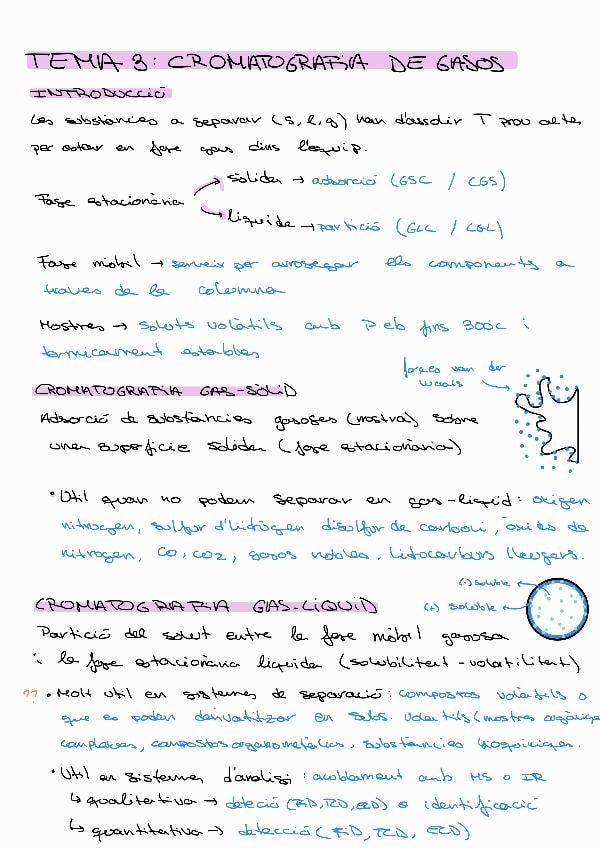 TEMA 3: CROMATOGRAFIA DE GASOS
INTRODUCCIÓ
Les substàncies a separar (s, l, g) han d'assolir T prou altes
per estar en fase gas dins l'equip.
sòlida → adsorció (GSC / CGS)
Fase estacionària
líquida → partició (GLC / CGL)
Fase mòbil → serveix per arrossegar els components a
través de la columna
Mostres → soluts volàtils amb P eb fins 300ºC i
tèrmicament estables
forces van der
Waals
CROMATOGRAFIA GAS-SÒLID
Adsorció de substàncies gasoses (mostra) sobre
una superfície sòlida (fase estacionària)
• Útil quan no podem separar en gas-líquid: oxigen
nitrogen, sulfur d'hidrogen disulfur de carboni, òxids de
nitrogen, CO, CO2, gasos nobles, hidrocarburs lleugers.
(-) soluble
(+) soluble
CROMATOGRAFIA GAS-LÍQUID
Partició del solut entre la fase mòbil gasosa
i la fase estacionària líquida (solubilitat-volatilitat)
?? • Molt útil en sistemes de separació: compostos volàtils o
que es poden derivatitzar en subs. volàtils (mostres orgàniques
complexes, compostos organometàl·lics, substàncies bioquímiques.
• Útil en sistemes d'anàlisi: acoblament amb MS o IR
↳ qualitativa → detecció (FID, TCD, ECD) o identificació
↳ quantitativa → detecció (FID, TCD, ECD)